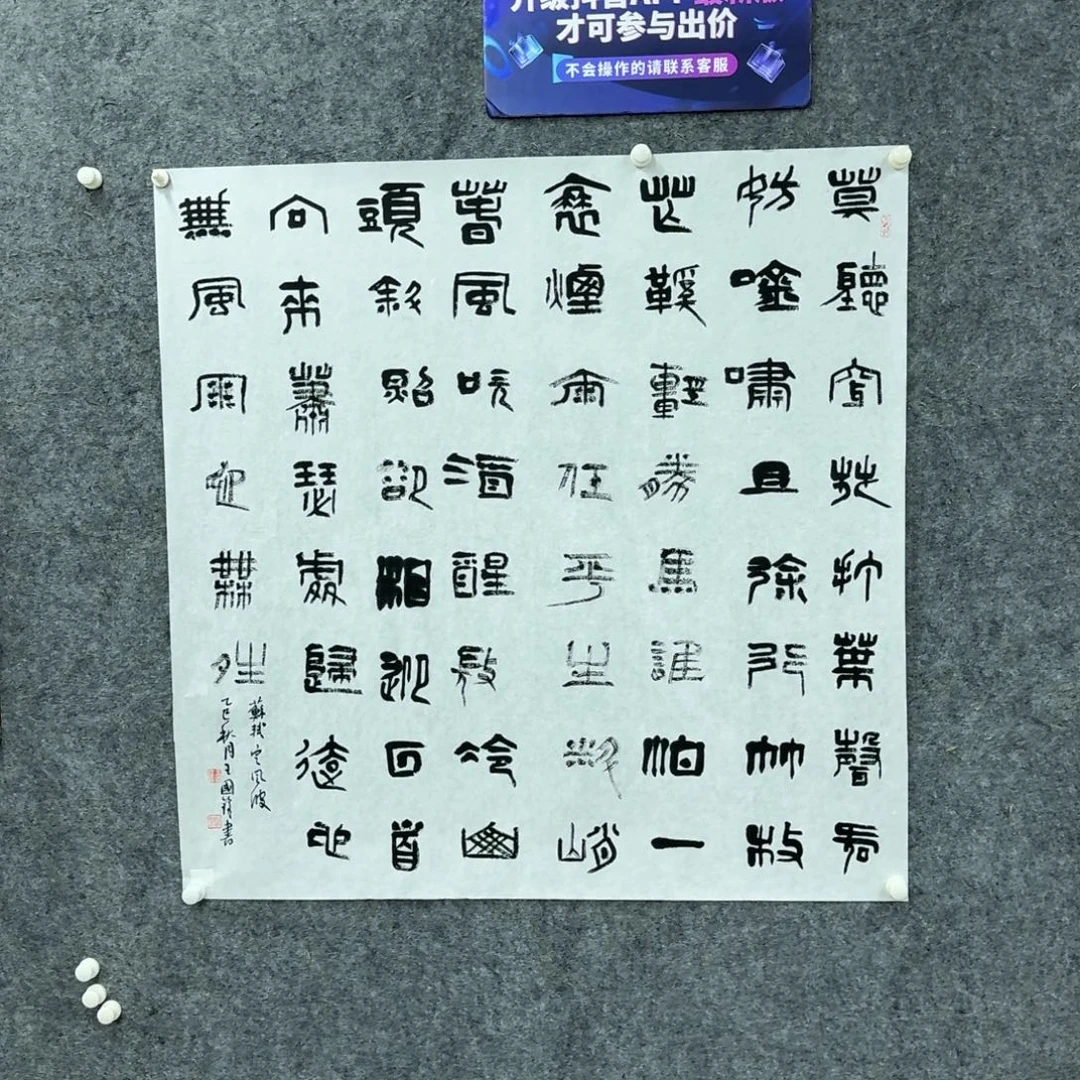 才可参与出价
不会操作的请联系客服
莫聽穿林打葉聲何
妨唫嘯且徐行竹杖
芒鞵輕勝馬誰怕一
蓑煙雨任平生料峭
春風吹酒醒微冷山
頭斜照卻相迎回首
向來蕭瑟處歸迲也
無風雨也無夝
蘇軾定風波
乙巳秋月王國書